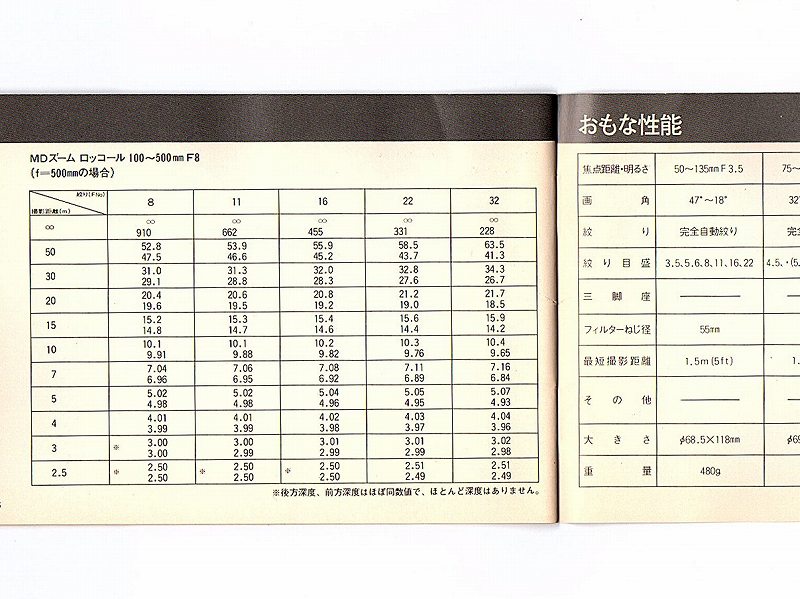 MDズーム ロッコール 100〜500mm F8
(f=500mmの場合)
絞り(FNo.) 8 11 16 22 32
撮影距離(m)
∞ ∞ ∞ ∞ ∞ ∞
910 662 455 331 228
50 52.8 53.9 55.9 58.5 63.5
47.5 46.6 45.2 43.7 41.3
30 31.0 31.3 32.0 32.8 34.3
29.1 28.8 28.3 27.6 26.7
20 20.4 20.6 20.8 21.2 21.7
19.6 19.5 19.2 19.0 18.5
15 15.2 15.3 15.4 15.6 15.9
14.8 14.7 14.6 14.4 14.2
10 10.1 10.1 10.2 10.3 10.4
9.91 9.88 9.82 9.76 9.65
7 7.04 7.06 7.08 7.11 7.16
6.96 6.95 6.92 6.89 6.84
5 5.02 5.02 5.04 5.05 5.07
4.98 4.98 4.96 4.95 4.93
4 4.01 4.01 4.02 4.03 4.04
3.99 3.99 3.98 3.97 3.96
3 ※ 3.00 3.00 3.01 3.01 3.02
3.00 2.99 2.99 2.99 2.98
2.5 ※ 2.50 ※ 2.50 ※ 2.50 2.51 2.51
2.50 2.50 2.50 2.49 2.49
※後方深度、前方深度はほぼ同数値で、ほとんど深度はありません。
おもな性能
焦点距離・明るさ 50〜135mm F3.5 75〜
画角 47°〜18° 32°
絞り 完全自動絞り 完全
絞り目盛 3.5、5.6、8、11、16、22 4.5、・(5.
三脚座
フィルターねじ径 55mm
最短撮影距離 1.5m (5ft) 1.
その他
大きさ φ68.5×118mm φ69
重量 480g